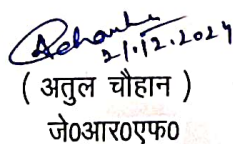 21.12.2024
( अतुल चौहान )
जे0आर0एफ0